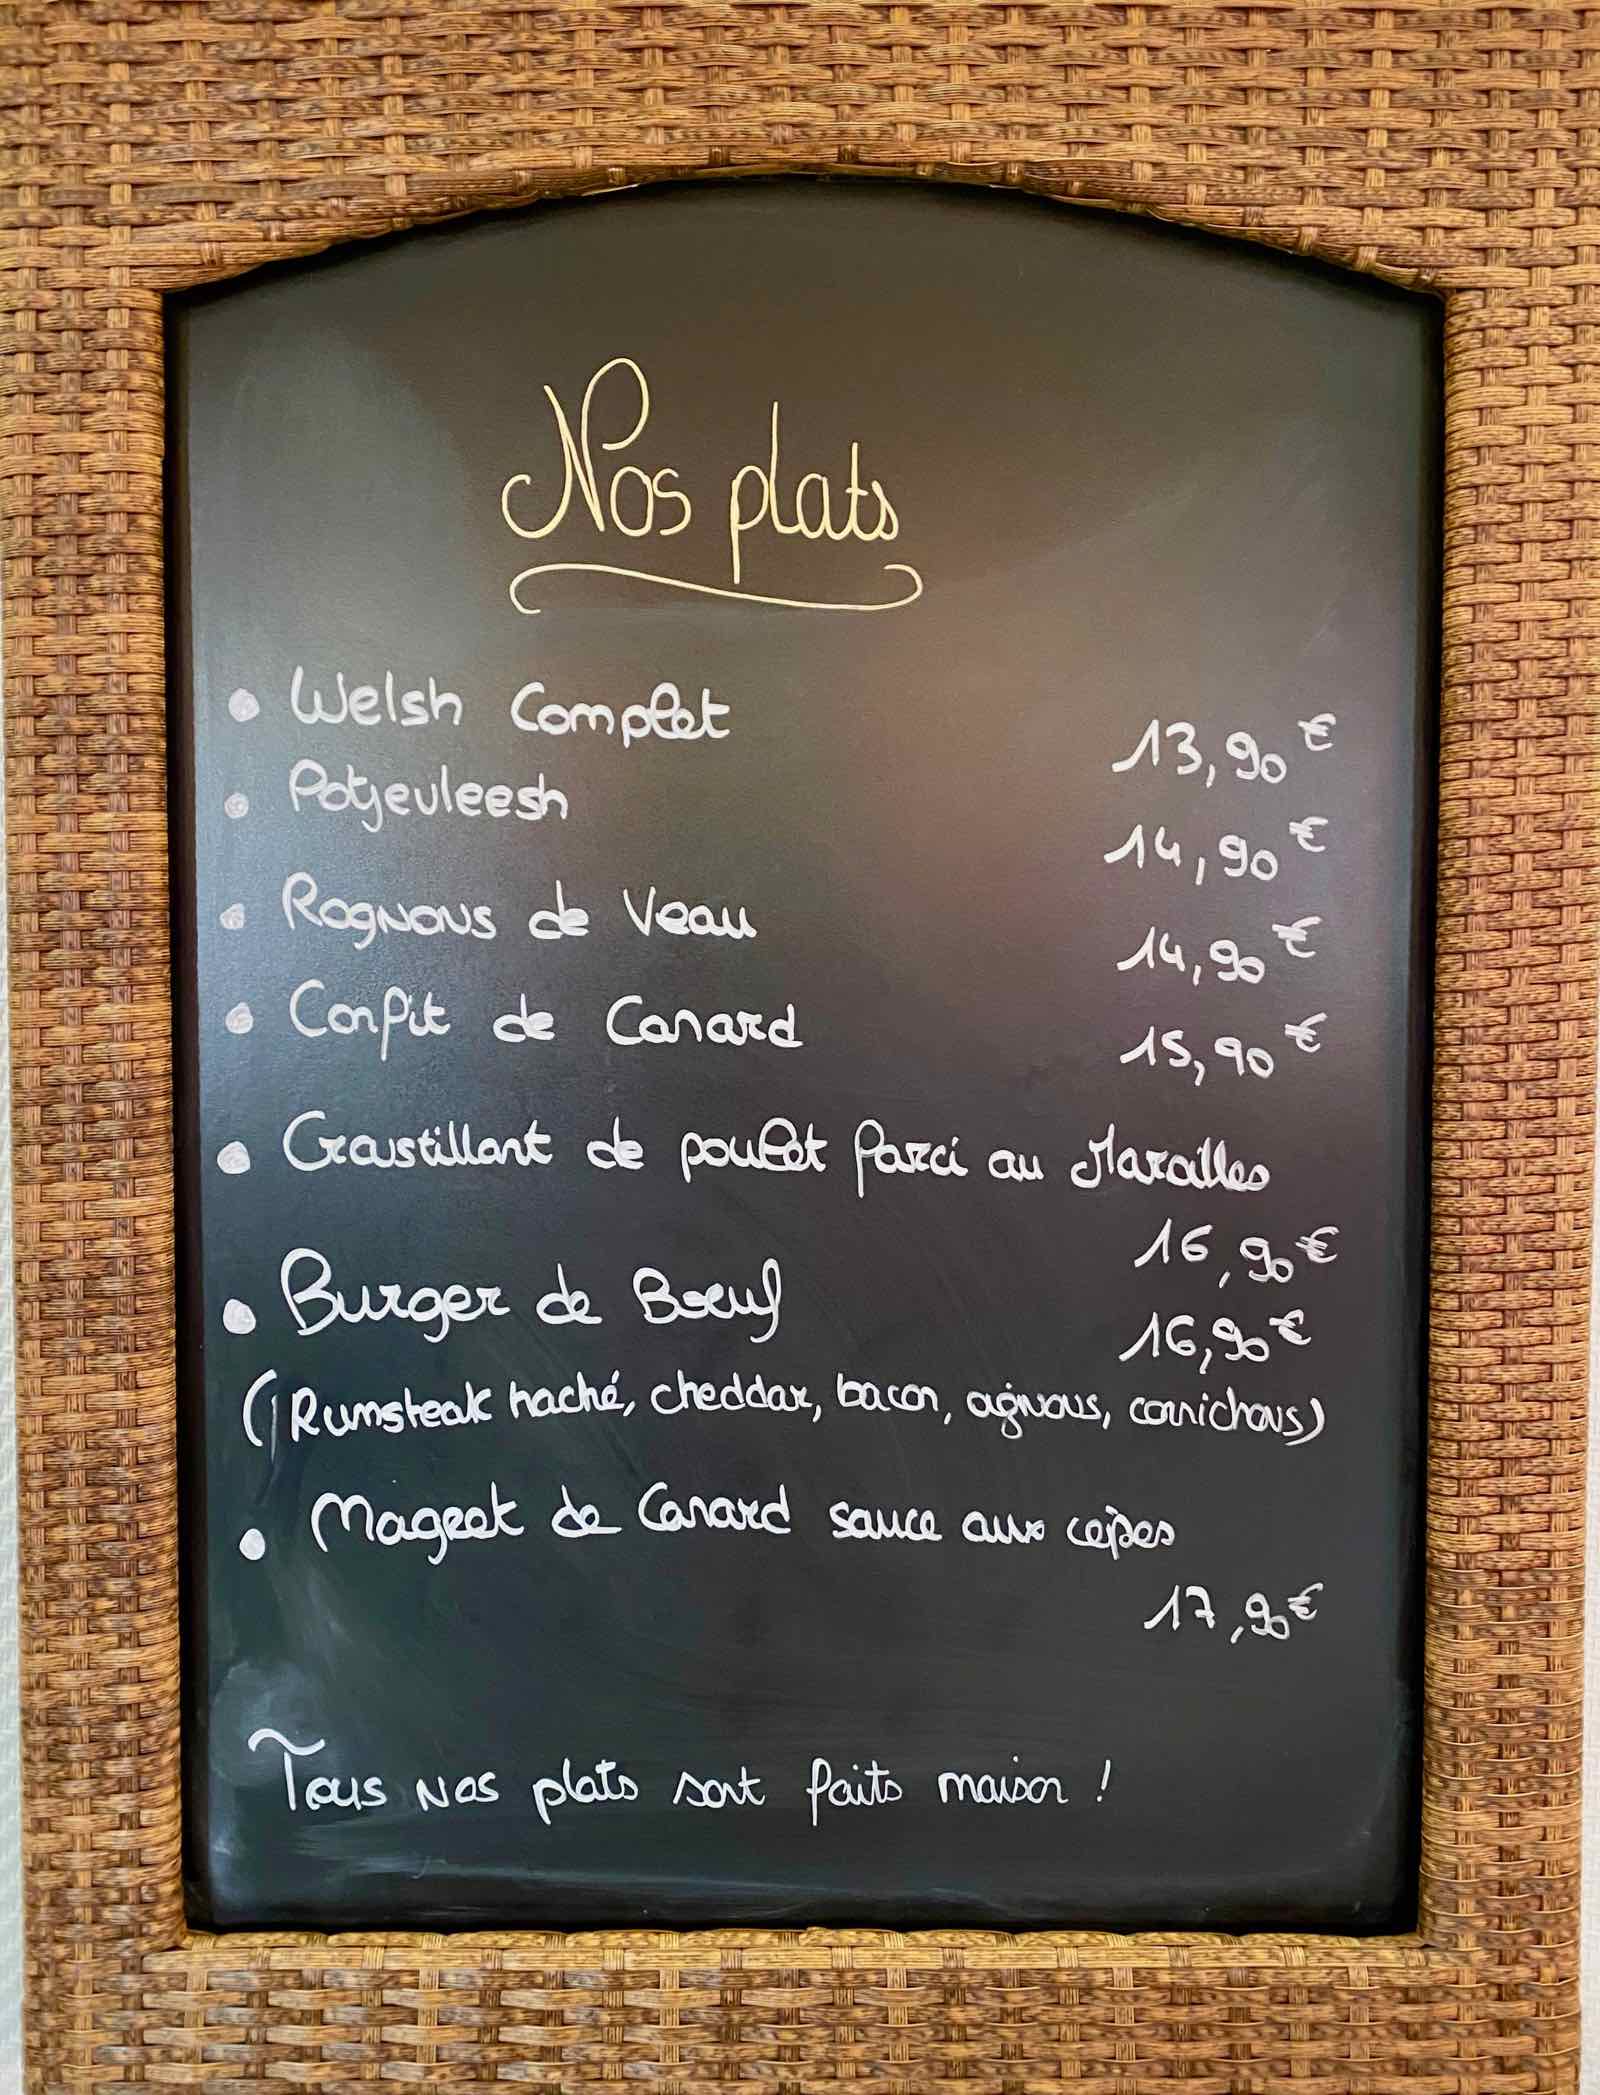 Nos plats
• Welsh Complet 13,90€
• Potjevleesh 14,90€
• Rognons de Veau 14,90€
• Confit de Canard 15,90€
• Croustillant de poulet farci au Maroilles
16,90€
• Burger de Bœuf 16,90€
(Rumsteak haché, cheddar, bacon, oignons, cornichons)
• Magret de Canard sauce aux cèpes
17,90€
Tous nos plats sont faits maison !